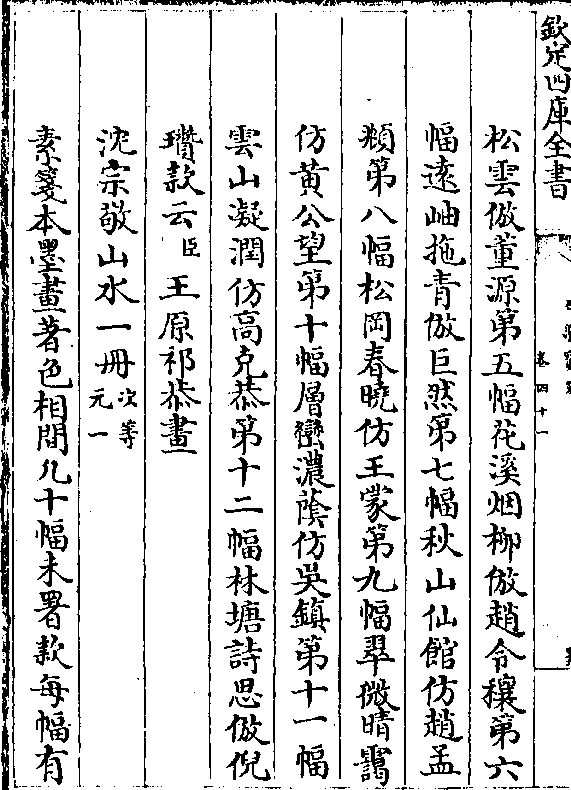 欽定四庫全書
卷四十一
松雲倣董源第五幅花溪烟柳倣趙令穰第六
幅遠岫拖青倣巨然第七幅秋山仙館仿趙孟
頫第八幅松岡春曉仿王蒙第九幅翠微晴靄
仿黄公望第十幅層巒濃蔭仿吳鎮第十一幅
雲山凝潤仿高克恭第十二幅林塘詩思倣倪
瓚款云臣王原祁恭畫
沈宗敬山水一冊次等元一
素箋本墨畫著色相間凡十幅未署款每幅有